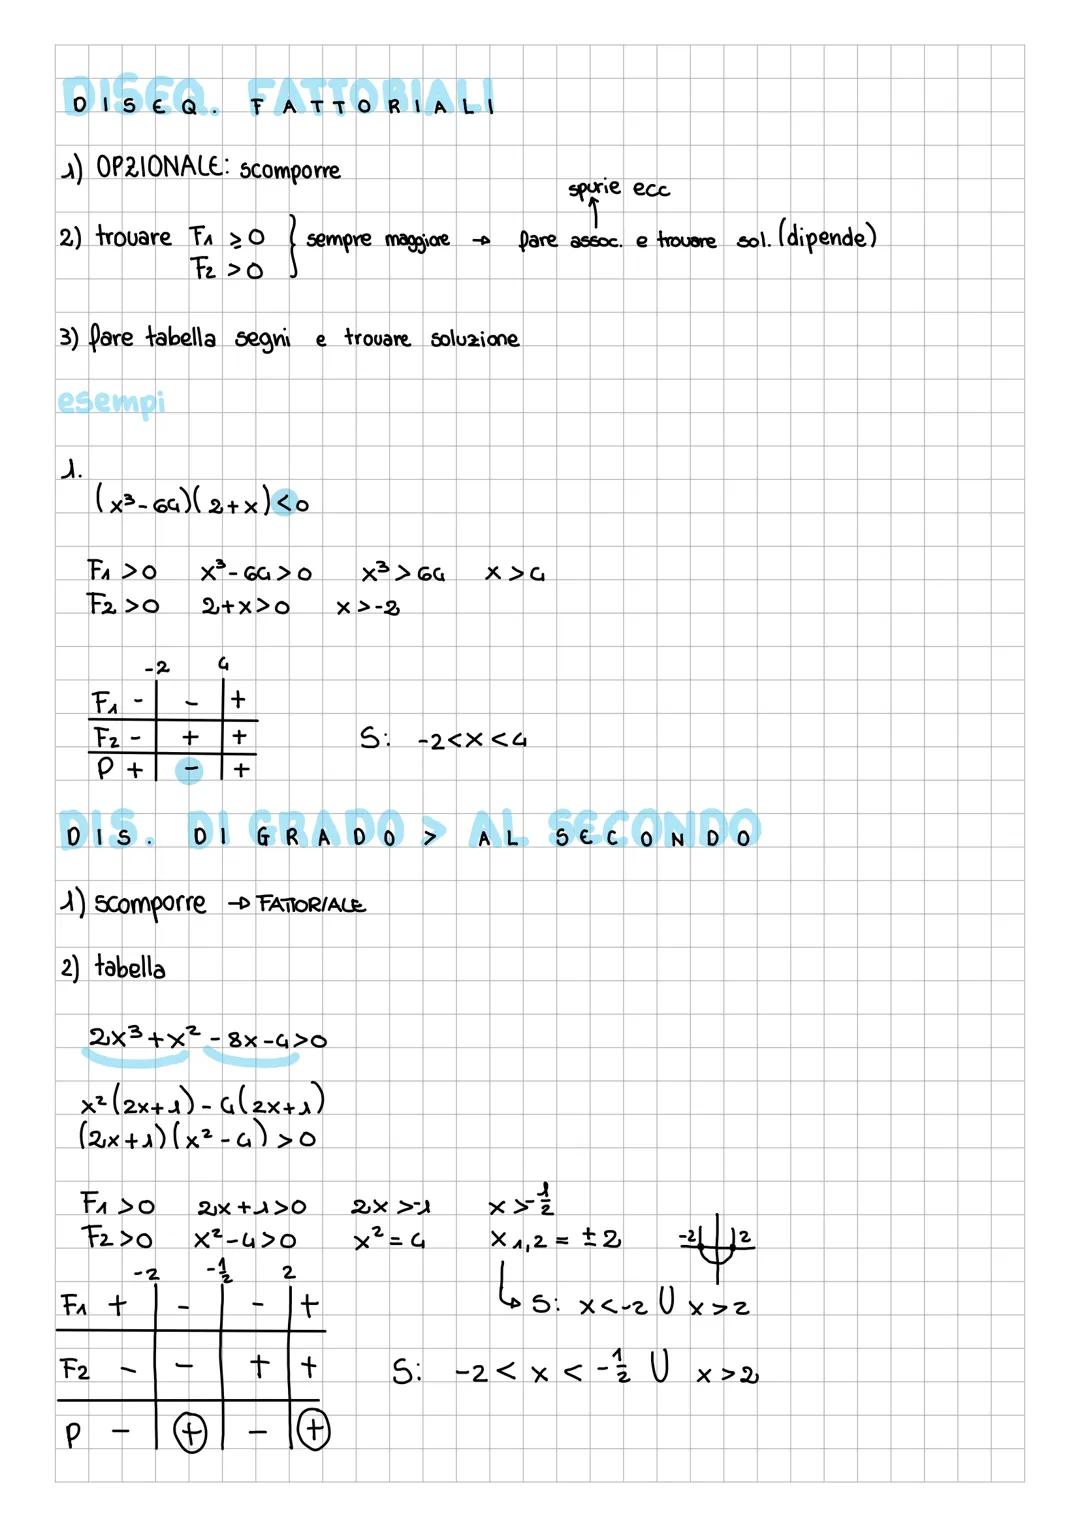 DISEQ. FATTORIALI
1) OPZIONALE: scomporre
spurie ecc
2) trovare F1 ≥ 0 } sempre maggiore → fare assoc. e trovare sol. (dipende)
F2 > 0
3) fare tabella segni e trovare soluzione
esempi
1.
(x³-64)(2+x)<0
F1 >0 x³-64>0 x³>64 x>4
F2 >0 2+x>0 x>-2
-2 4
F1 - - +
F2 - + +
P + - +
S: -2<x<4
DIS. DI GRADO > AL SECONDO
1) scomporre → FATTORIALE
2) tabella
2x³+x²-8x-4>0
x²(2x+1)-4(2x+1)
(2x+1)(x²-4)>0
F1 >0 2x+1>0 2x>-1 x>-1/2
F2 >0 x²-4>0 x²=4 x1,2 = ±2 -2 2
↳ S: x<-2 U x>2
-2 -1/2 2
F1 + - - +
F2 - - + +
P - + - +
S: -2 < x < -1/2 U x>2